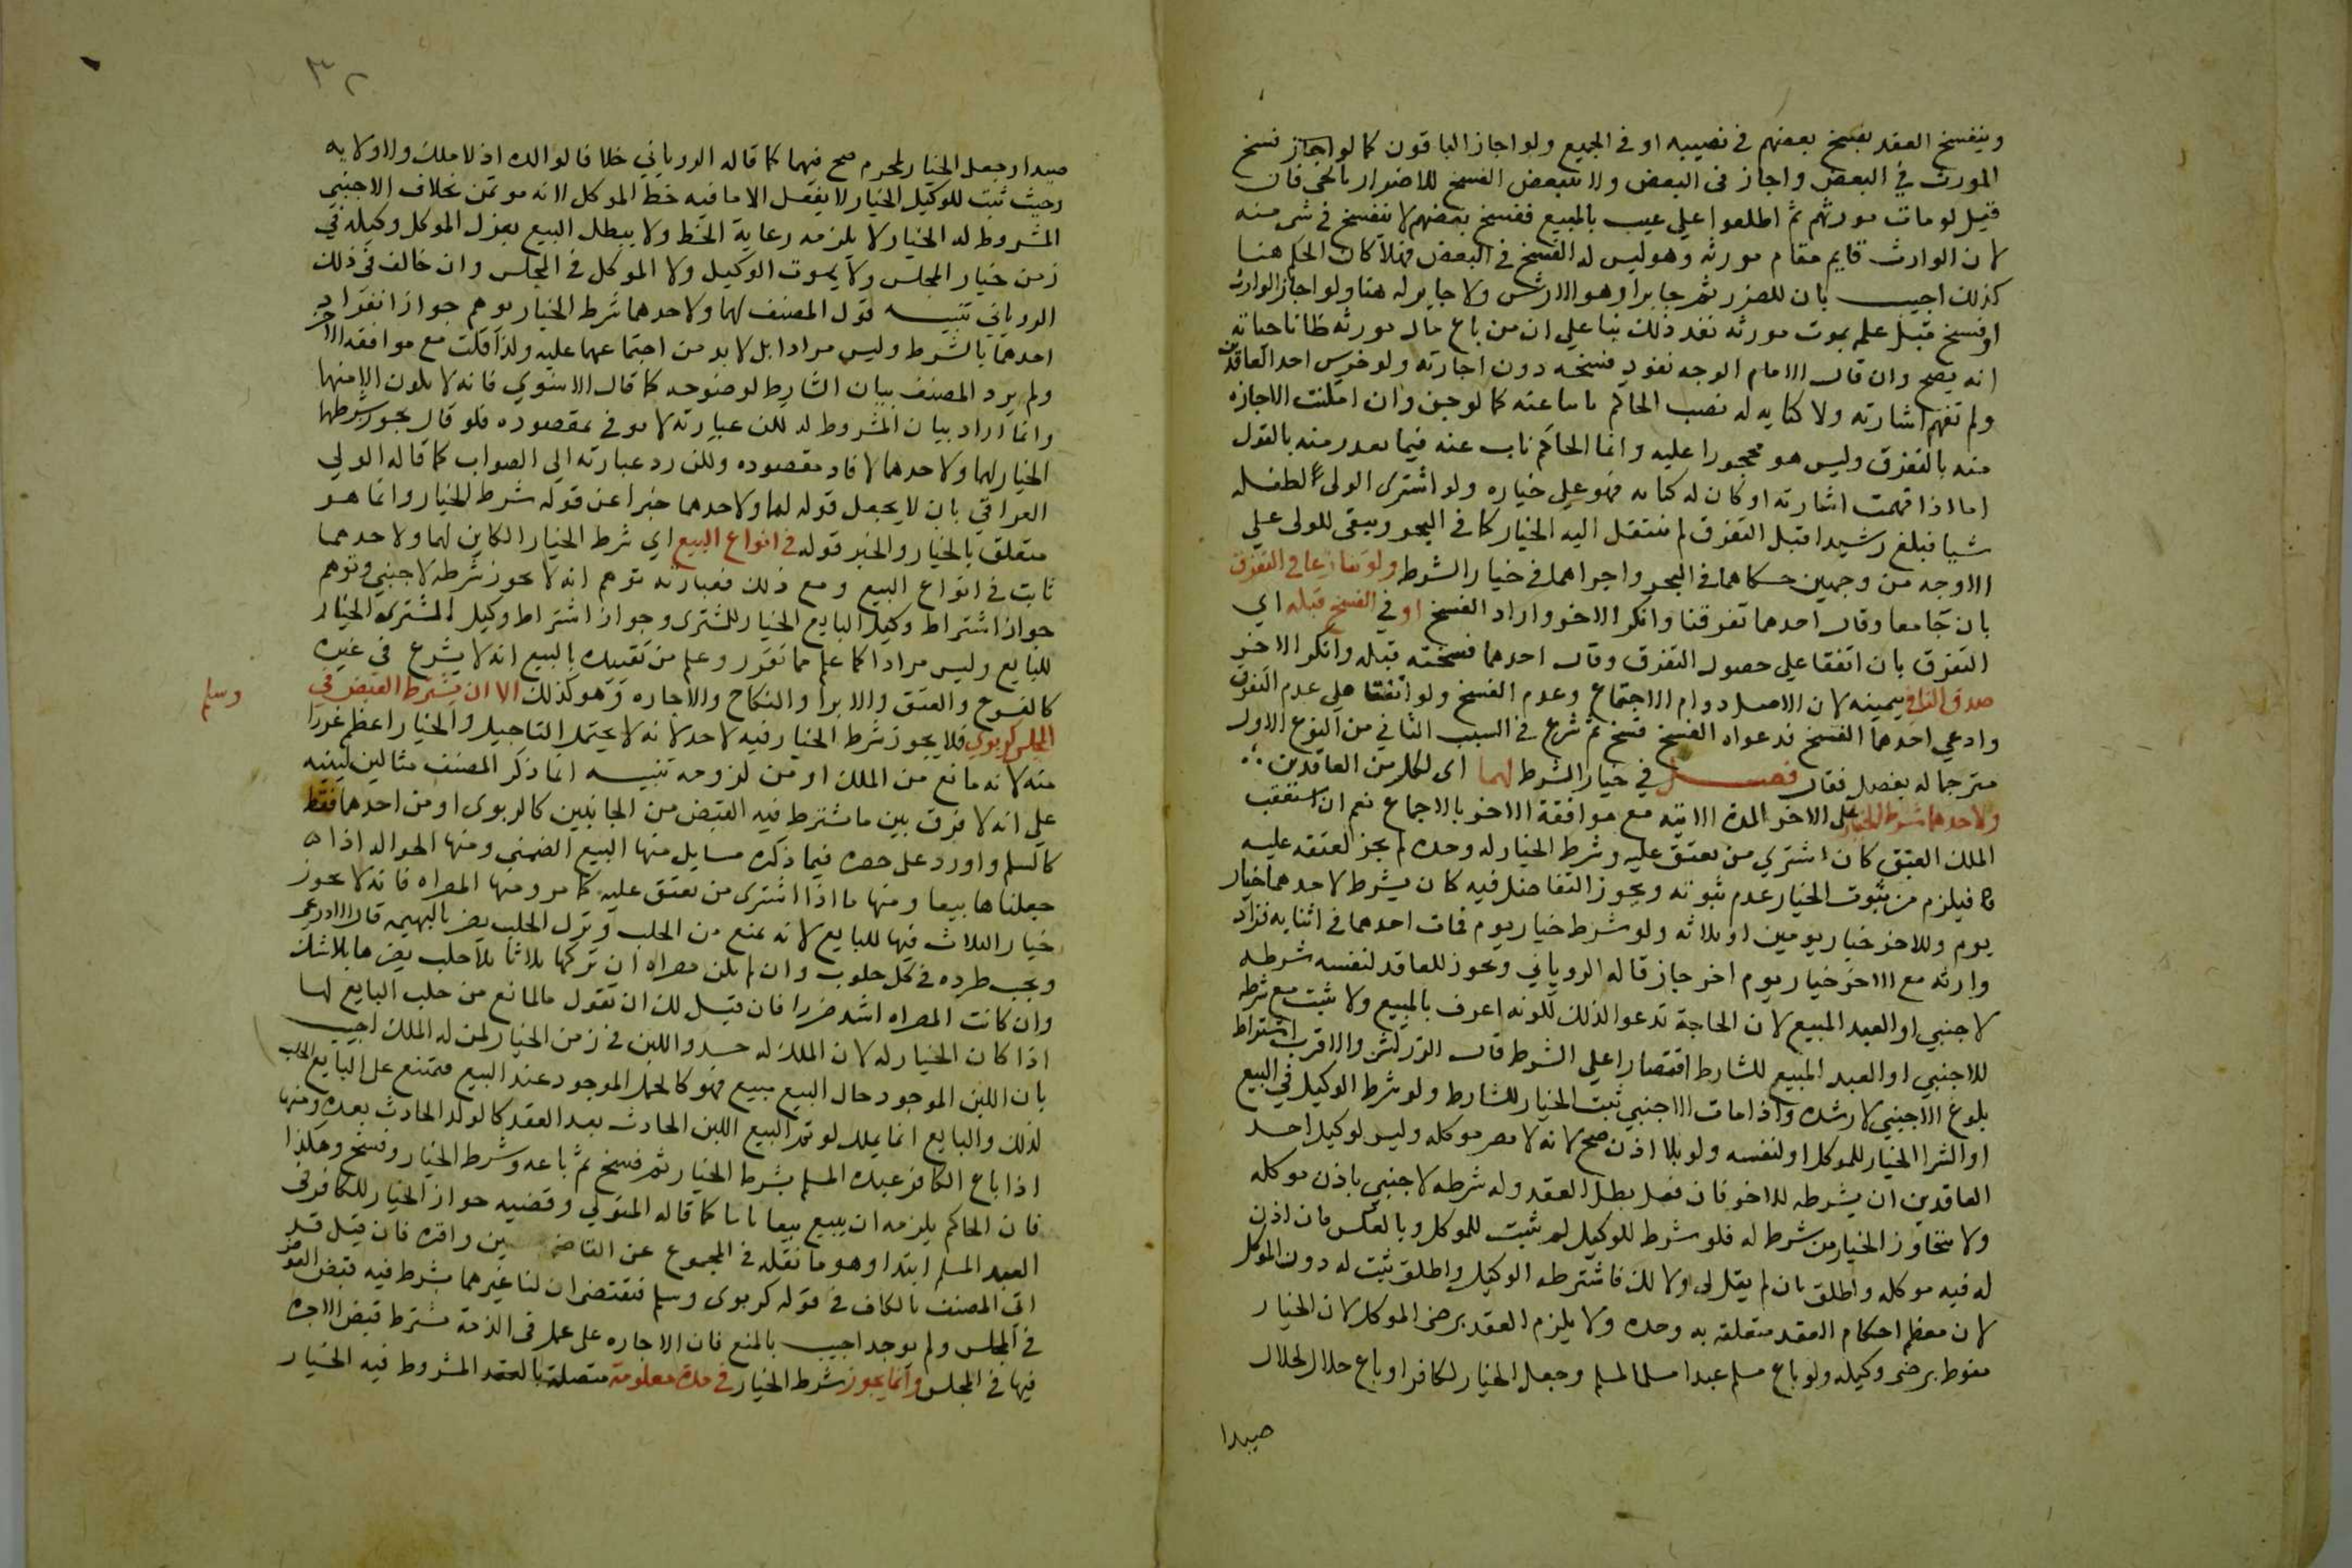 وينفسخ العقد بفسخ بعضهم في نصيبه او في الجميع ولو اجاز الباقون كما لو اجاز فسخ
المورث في البعض واجاز في البعض ولا يتبعض الفسخ للاضرار بالحي فان
قيل لو مات مورثهم ثم اطلعوا علي عيب بالمبيع ففسخ بعضهم لا ينفسخ في شي منه
لان الوارث قايم مقام مورثه وهو ليس له الفسخ في البعض فهلا كان الحكم هنا
كذلك اجيب بان للضرر ثم جابرا وهو الارش ولا جابر له هنا ولو اجاز الوارث
او فسخ قبل علم بموت مورثه نفذ ذلك بنا علي ان من باع مال مورثه ظانا حياته
انه يصح وان قال الامام الوجه نفوذ فسخه دون اجازته ولو خرس احد العاقدين
ولم تفهم اشارته ولا كتابه له نصب الحاكم نايبا عنه كما لو جن وان امكنت الاجازه
منه بالتفرق وليس هو محجورا عليه وانما الحاكم ناب عنه فيما تعذر منه بالقول
اما اذا فهمت اشارته او كان له كتابه فهو علي خياره ولو اشترى الولي لطفله
شيا فبلغ رشيدا قبل التفرق لم ينتقل اليه الخيار كما في البحر ويبقى للولي علي
الاوجه من وجهين حكاهما في البحر واجراهما في خيار الشرط ولو تنازعا في التفرق
بان جا معا وقال احدهما تفرقنا وانكر الاخر واراد الفسخ او في الفسخ قبله اي
التفرق بان اتفقا علي حصول التفرق وقال احدهما فسخته قبله وانكر الاخر
صدق النافي بيمينه لان الاصل دوام الاجتماع وعدم الفسخ ولو اتفقا علي عدم التفرق
وادعي احدهما الفسخ فدعواه الفسخ فسخ ثم شرع في السبب الثاني من النوع الاول
مترجما له بفصل فقال فصل في خيار الشرط لهما اي لكل من العاقدين
ولاحدهما شرط الخيار علي الاخر المدة الاتيه مع موافقة الاخر بالاجماع نعم ان استعقب
الملك العتق كان اشترى من يعتق عليه وشرط الخيار له وحده لم يجز لعتقه عليه
فيلزم من ثبوت الخيار عدم ثبوته ويجوز التفاضل فيه كان يشرط لاحدهما خيار
يوم وللاخر خيار يومين او ثلاثه ولو شرط خيار يوم فمات احدهما في اثنايه فزاد
وارثه مع الاخر خيار يوم اخر جاز قاله الروياني ويجوز للعاقد لنفسه شرطه
لاجنبي او العبد المبيع لان الحاجة تدعو لذلك لكونه اعرف بالمبيع ولا يثبت مع شرطه
للاجنبي او العبد المبيع للشارط اقتصارا علي الشرط قال الزركشي والاقرب اشتراط
بلوغ الاجنبي لا رشده واذا مات الاجنبي ثبت الخيار للشارط ولو شرط الوكيل في البيع
او الشرا الخيار للموكل او لنفسه ولو بلا اذن صح لانه لا يضر موكله وليس لوكيل احد
العاقدين ان يشرطه للاخر فان فعل بطل العقد وله شرطه لاجنبي باذن موكله
ولا يتجاوز الخيار من شرط له فلو شرط للوكيل لم يثبت للموكل وبالعكس فان اذن
له فيه موكله واطلق بان لم يقل لي ولا لك فاشترطه الوكيل واطلق ثبت له دون الموكل
لان معظم احكام العقد متعلقة به وحده ولا يلزم العقد برضى الموكل لان الخيار
منوط برضى وكيله ولو باع مسلم عبدا مسلما لمسلم وجعل الخيار لكافر او باع حلال لحلال
صيدا
٣٢
صيدا وجعل الخيار لمحرم صح فيهما كما قاله الروياني خلافا لوالده اذ لا ملك ولا ولايه
وحيث ثبت للوكيل الخيار لا يفعل الا ما فيه حظ الموكل لانه مؤتمن بخلاف الاجنبي
المشروط له الخيار لا يلزمه رعاية الحظ ولا يبطل البيع بعزل الموكل وكيله في
زمن خيار المجلس ولا بموت الوكيل ولا الموكل في المجلس وان خالف في ذلك
الروياني تنبيه قول المصنف لهما ولاحدهما شرط الخيار يوهم جواز انفراد
احدهما بالشرط وليس مرادا بل لا بد من اجتماعهما عليه ولذا قلت مع موافقه الاخر
ولم يرد المصنف بيان الشارط لوضوحه كما قال الاسنوي فانه لا يكون الا منهما
وانما اراد بيان المشروط له لكن عبارته لا توفي بمقصوده فلو قال يجوز شرطهما
الخيار لهما ولاحدهما لافاد مقصوده ولكن رد عبارته الي الصواب كما قاله الولي
العراقي بان لا يجعل قوله لهما ولاحدهما خبرا عن قوله شرط الخيار وانما هو
متعلق بالخيار والخبر قوله في انواع البيع اي شرط الخيار الكاين لهما ولاحدهما
ثابت في انواع البيع ومع ذلك فعبارته توهم انه لا يجوز شرطه لاجنبي وتوهم
جواز اشتراط وكيل البايع الخيار للمشترى وجواز اشتراط وكيل المشترى الخيار
للبايع وليس مرادا كما علم مما تقرر وعلم من تقييده بالبيع انه لا يشرع في غيره
كالفسوخ والعتق والابرا والنكاح والاجاره وهو كذلك الا ان يشترط القبض في
المجلس كربوي فلا يجوز شرط الخيار فيه لاحد لانه لا يحتمل التاجيل والخيار اعظم غررا
وسلم
منه لانه مانع من الملك او من لزومه تنبيه انما ذكر المصنف مثالين لينبه
علي انه لا فرق بين ما يشترط فيه القبض من الجانبين كالربوى او من احدهما فقط
كالسلم واورد على حصره فيما ذكره مسايل منها البيع الضمني ومنها الحواله اذا
جعلناها بيعا ومنها ما اذا اشترى من يعتق عليه كما مر ومنها المصراه فانه لا يجوز
خيار الثلاث فيها للبايع لانه يمنع من الحلب وترك الحلب يضر بالبهيمه قال الاذرعي
ويجب طرده في كل حلوب وان لم يكن مصراه اذ تركها ثلاثا بلا حلب يضرها بلا شك
وان كانت المصراه اشد ضررا فان قيل لك ان تقول ما المانع من حلب البايع لها
اذا كان الخيار له لان الملك له واللبن في زمن الخيار لمن له الملك اجيب
بان اللبن الموجود حال البيع مبيع فهو كالحمل الموجود عند البيع فيمتنع على البايع الحلب
لذلك والبايع انما يملك لو تم البيع اللبن الحادث بعد العقد كالولد الحادث بعده ومنها
اذا باع الكافر عبده المسلم بشرط الخيار ثم فسخ ثم باعه وشرط الخيار وفسخ وهكذا
فان الحاكم يلزمه ان يبيع بيعا باتا كما قاله المتولي وقضيه جواز الخيار للكافر في
العبد المسلم ابتدا وهو ما نقله في المجموع عن القاضي حسين واقره فان قيل قد
اتي المصنف بالكاف في قوله كربوى وسلم فتقتضى ان لنا غيرهما يشرط فيه قبض العوض
في المجلس ولم يوجد اجيب بالمنع فان الاجاره على عمل في الذمة يشترط قبض الاجرة
فيها في المجلس وانما يجوز شرط الخيار في مدة معلومة متصلة بالعقد المشروط فيه الخيار